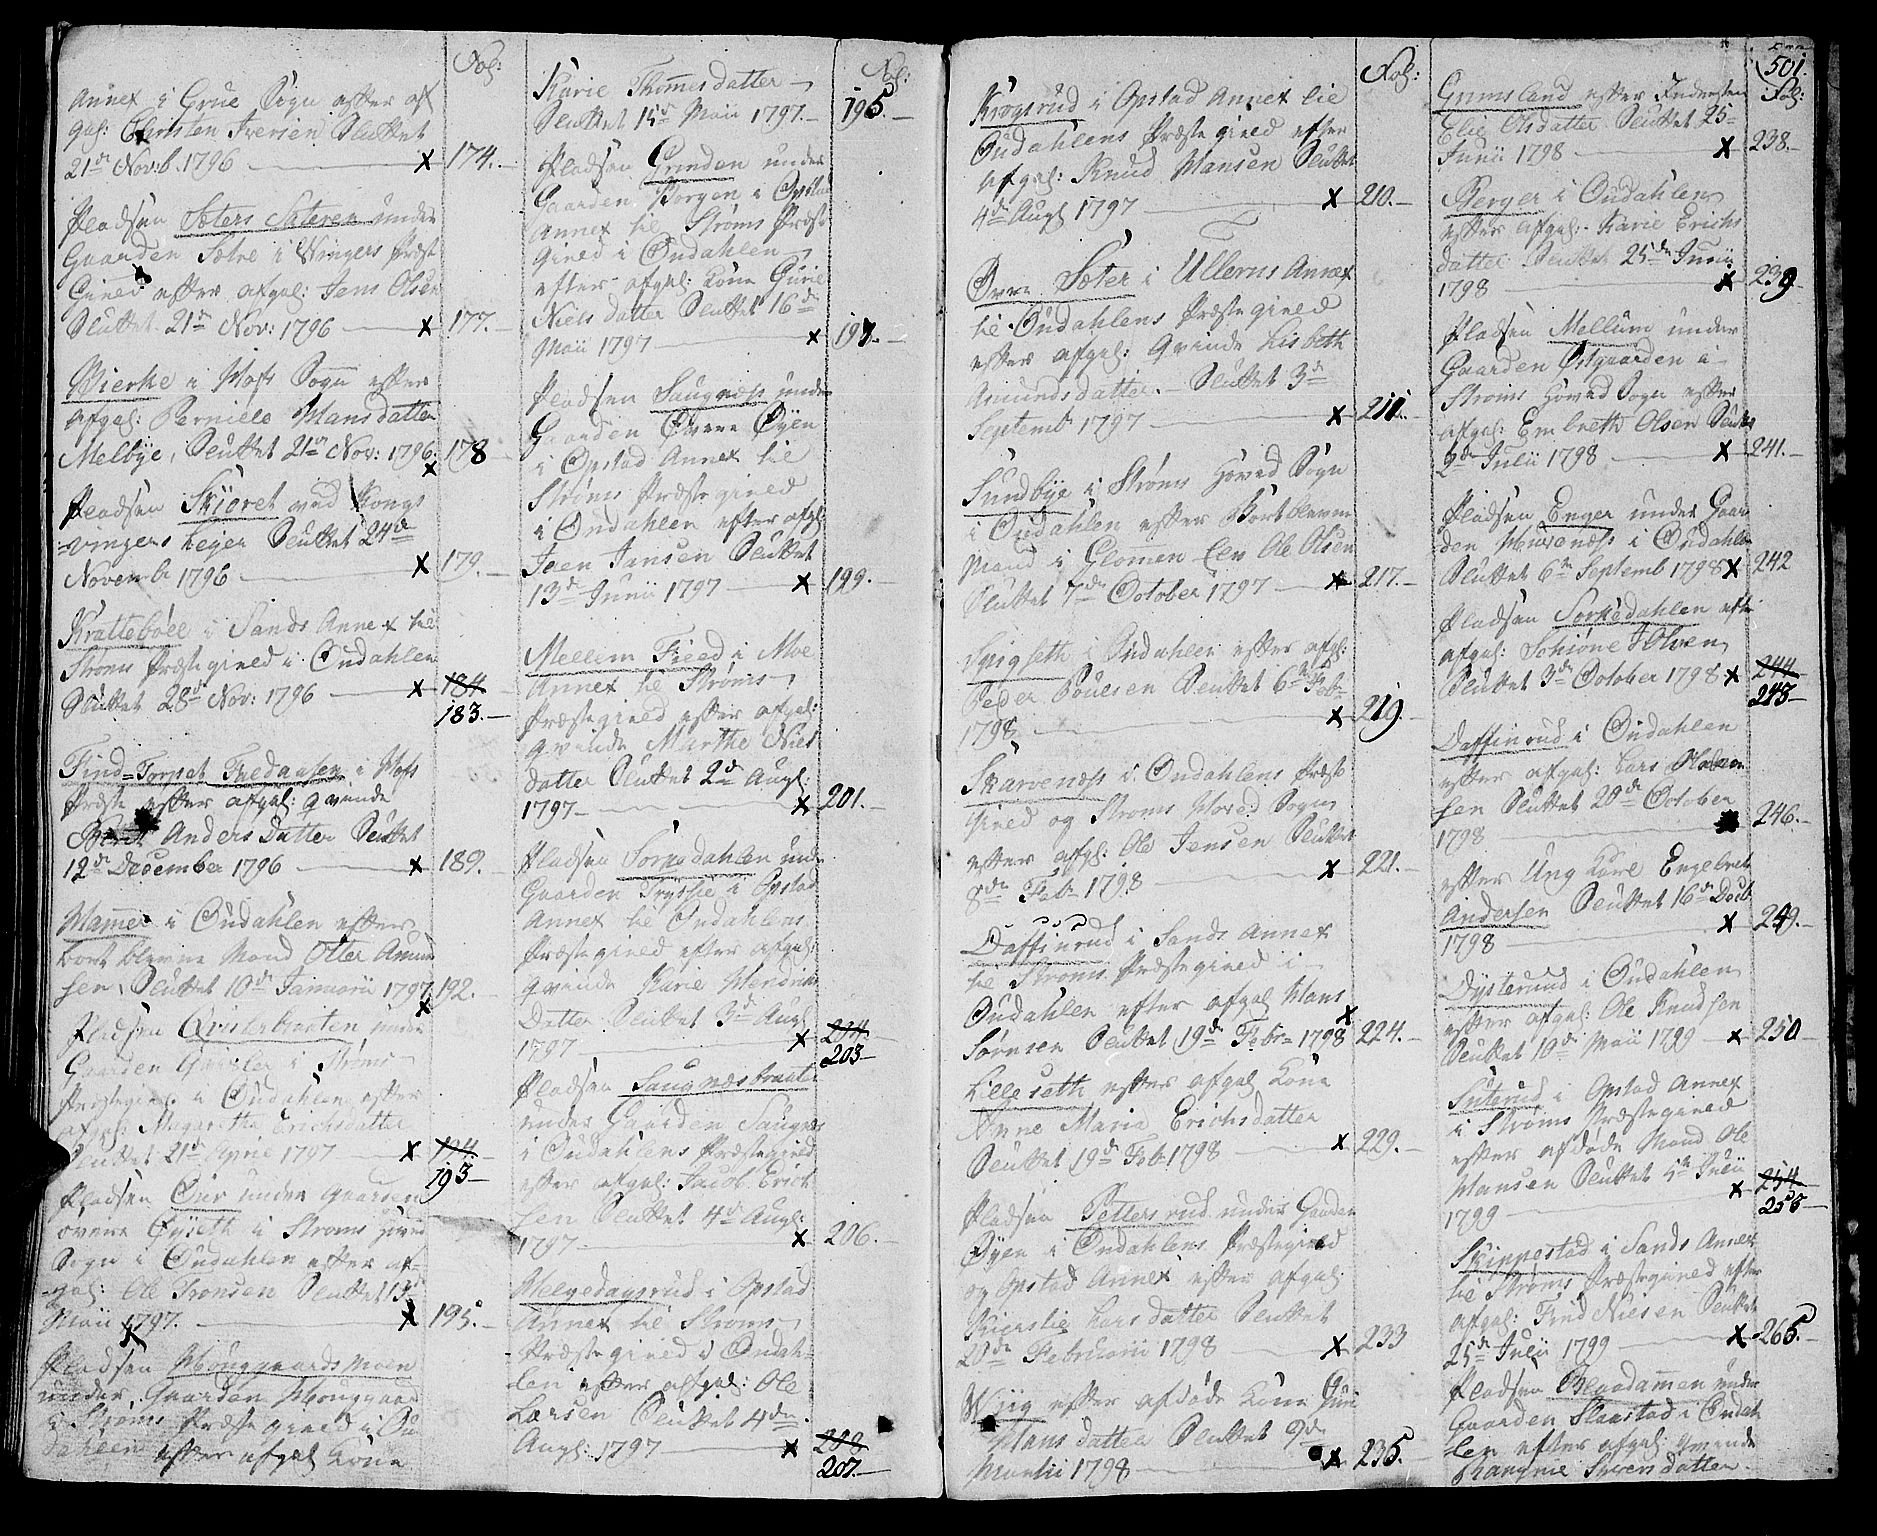 Fol:
Annex i Grue Sogn efter af
gal: Christen Iversen Sluttet
21de Novb. 1796 — x 174.
Pladsen Sæters Sæteren under
Gaarden Sætre i Wingers Præste
Gield efter afgal: Jens Olsen
Sluttet 21de Nov: 1796 — x 177.
Bierke i Hofs Sogn efter
afgal: Pernille Hansdatter
Melbye, Sluttet 21de Nov: 1796. x 178
Pladsen Skiöret ved Kongs
vingers Leyer Sluttet 24de
Novemb 1796 — x 179.
Krattebøll i Sands Annex til
Strøms Præstegield i Oudahlen
Sluttet 28de Nov: 1796 — x 184
183.
Find=Torpet Fredaasen i Hofs
Præste efter afgal: qvinde
Berit Anders Datter Sluttet
12de December 1796 — x 189.
Hammer i Oudahlen efter
bort blevne Mand Otter Amund
sen, Sluttet 10de Januarii 1797 x 192.
Pladsen Qvisterbraaten under
Gaarden Gvisler i Strøms
Præstegield i Oudahlen efter
afgal: Magarethe Erichsdatter
Sluttet 21de April 1797 — x 194.
193
Pladsen Our under Gaarden
øvere Øyseth i Strøms Hoved
Sogn i Oudahlen efter af-
gal: Ole Tronsen Sluttet 13de
Maii 1797. — x 195.
Pladsen Houggaards Moen
under Gaarden Houggaard
i Strøms Præste gield i Ou
dahlen efter afgal Kone
Fol:
Karie Thomesdatter
Sluttet 15de Maii 1797. — 195.
Pladsen Grinden under
Gaarden Borgen i Opstad
Annex til Strøms Præste
gield i Oudahlen
efter afgal: Kone Gurie
Nielsdatter Sluttet 16de
Maii 1797 — x 197.
Pladsen Saugnæss under
Gaarden Øvere Øyen
i Opstad Annex til
Strøms Præstegield
i Oudahlen efter afgl
Joen Jansen Sluttet
13de Junii 1797 — x 199.
Mellem Field i Moe
Annex til Strøms
Præstegield efter afgal:
qvinde Marthe Niels
datter Sluttet 2de Augl:
1797 — x 201.
Pladsen Sorkedahlen under
Gaarden Tryssie i Opstad
Annex til Oudahlens
Præstegield efter afgal:
qvinde Karie Hendrichs
Datter Sluttet 3de Augl
1797 — x 204.
203
Pladsen Saugnæsbraate
under Gaarden Saugnæs
i Oudahlens Præstegield
efter afgal: Jacob Erich
sen Sluttet 4de Augl:
1797 — x 206.
Helgedagsrud i Opstad
Annex til Strøms
Præstegield i Oudah-
len efter afgal: Ole
Larsen Sluttet 4de
Augl: 1797 — x 208
207.
Fol:
Krogsrud i Opstad Annex til
Oudahlens Præstegield efter
afgal: Knud Hansen Sluttet
4de Augl 1797 — x 210.
Øvre Sæter i Ullerns Annex
til Oudahlens Præstegield
efter afgal: qvinde Lisbeth
Amundsdatter. Sluttet 3de
Septemb 1797 — x 211.
Sundbye i Strøms Hoved Sogn
i Oudahlen efter Bortblevne
Mand i Glomen Elv Ole Olsen
Sluttet 7de October 1797 — x 217.
Spigseth i Oudahlen efter afgl:
Peder Poulsen Sluttet 6te Feb
1798. — x 219.
Skarvenæss i Oudahlens Præste
gield og Strøms Hoved Sogn
efter afgl: Ole Jensen Sluttet
8de Feb 1798 — x 221.
Daffinrud i Sands Annex
til Strøms Præstegield i
Oudahlen efter afgal Hans
Sørnsen Sluttet 19de Febr 1798 x 224.
Lilleseth efter afgal Kone
Anne Maria Erichsdatter
Sluttet 19de Feb 1798 — x 229.
Pladsen Petters rud under Gaarden
Øyen i Oudahlens Præstegield
og Opstad Annex efter afgal
Kierstie Larsdatter Sluttet
20de Februarii 1798 — x 233
Wiig efter afdøde Kone Guri
Hansdatter Sluttet 9de
Martii 1798 — x 235.
501.
Fol:
Grimsland efter Inderster
Elie Olsdatter Sluttet 25
Junii 1798 — x 238.
Berger i Oudahlen
efter afgal: Karie Erichs
datter Sluttet 25de Junii
1798 — x 239
Pladsen Mellum under
Gaarden Østgaarden i
Strøms Hoved Sogn efter
afgal: Embreth Olsen Sluttet
2de Julii 1798 — x 241.
Pladsen Enger under Gaar
den Murenæss i Oudahlen
Sluttet 6te Septemb 1798 x 242
Pladsen Sorkedahlen efter
afgal: Schiöne Tolven
Sluttet 3de October 1798 x 244
243
Daffinrud i Oudahlen
efter afgal: Lars Halvor
sen Sluttet 20de October
1798 — 246.
efter Ung Karl Engebret
Andersen Sluttet 16de Decb
1798 — x 249.
Dysterud i Oudahlen
efter afgal: Ole Knudsen
Sluttet 10de Maii 1799 — x 250
Suterud i Opstad Annex
i Strøms Præstegield
efter afdøde Mand Ole
Hansen Sluttet 5te Julii
1799 — x 254
253
Skippestad i Sands Annex
til Strøms Præstegield efter
afgal: Find Nielsen Sluttet
25de Julii 1799 — x 265.
Pladsen Blaadammen under
Gaarden Slaastad i Oudah
len efter afgal: qvinde
Rangnie Iversdatter